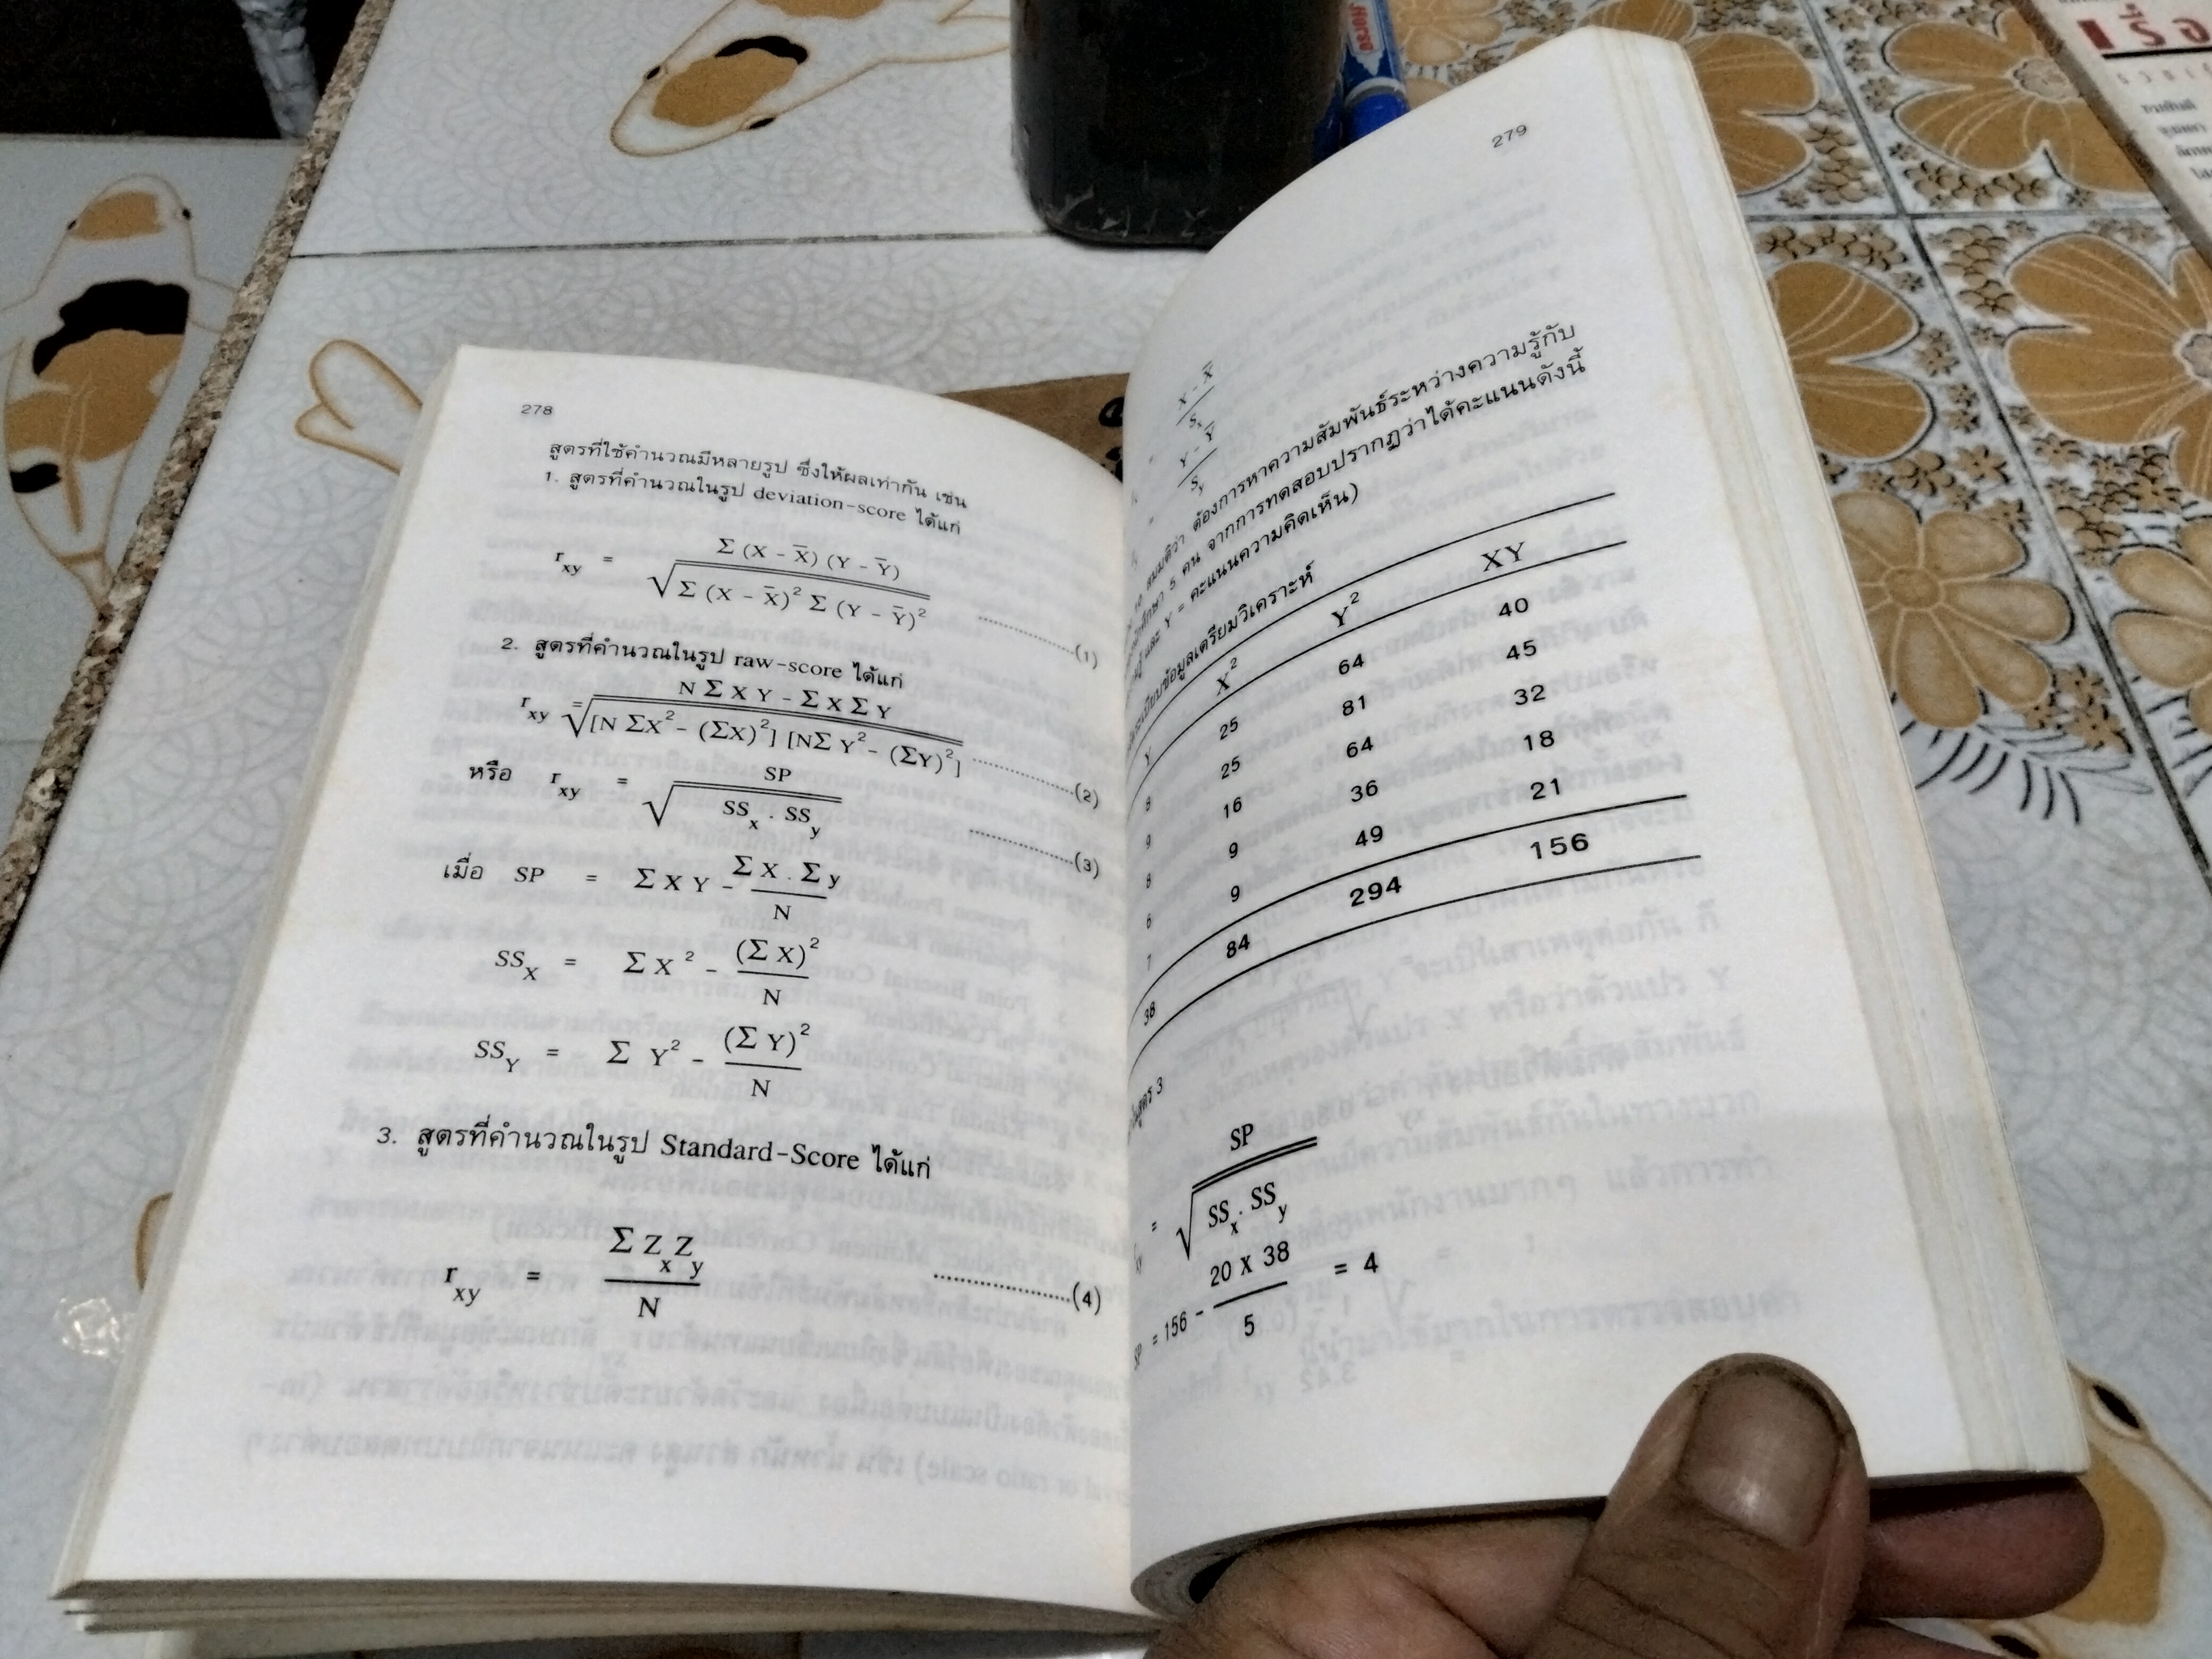 278
สูตรที่ใช้คำนวณมีหลายรูป ซึ่งให้ผลเท่ากัน เช่น
1. สูตรที่คำนวณในรูป deviation-score ได้แก่
r xy = Σ (X - X̄) (Y - Ȳ)
√ Σ (X - X̄)² Σ (Y - Ȳ)² ..........(1)
2. สูตรที่คำนวณในรูป raw-score ได้แก่
r xy = N Σ X Y - Σ X Σ Y
√ [N ΣX² - (ΣX)²] [NΣ Y² - (ΣY)²] ..........(2)
หรือ r xy = SP
√ SS x . SS y ..........(3)
เมื่อ SP = Σ X Y - Σ X . Σ y
N
SS X = Σ X² - (Σ X)²
N
SS Y = Σ Y² - (Σ Y)²
N
3. สูตรที่คำนวณในรูป Standard-Score ได้แก่
r xy = Σ Z x Z y
N ..........(4)
279
X - X̄
S x
= Y - Ȳ
S y
สมมติว่า ต้องการหาความสัมพันธ์ระหว่างความรู้กับ
5 คน จากการทดสอบปรากฏว่าได้คะแนนดังนี้
และ Y = คะแนนความคิดเห็น)
ข้อมูลเตรียมวิเคราะห์
Y X² Y² XY
8 25 64 40
9 25 81 45
8 16 64 32
6 9 36 18
7 9 49 21
38 84 294 156
สูตร 3
= SP
√ SS x . SS y
SP = 156 - 20 x 38 = 4
5